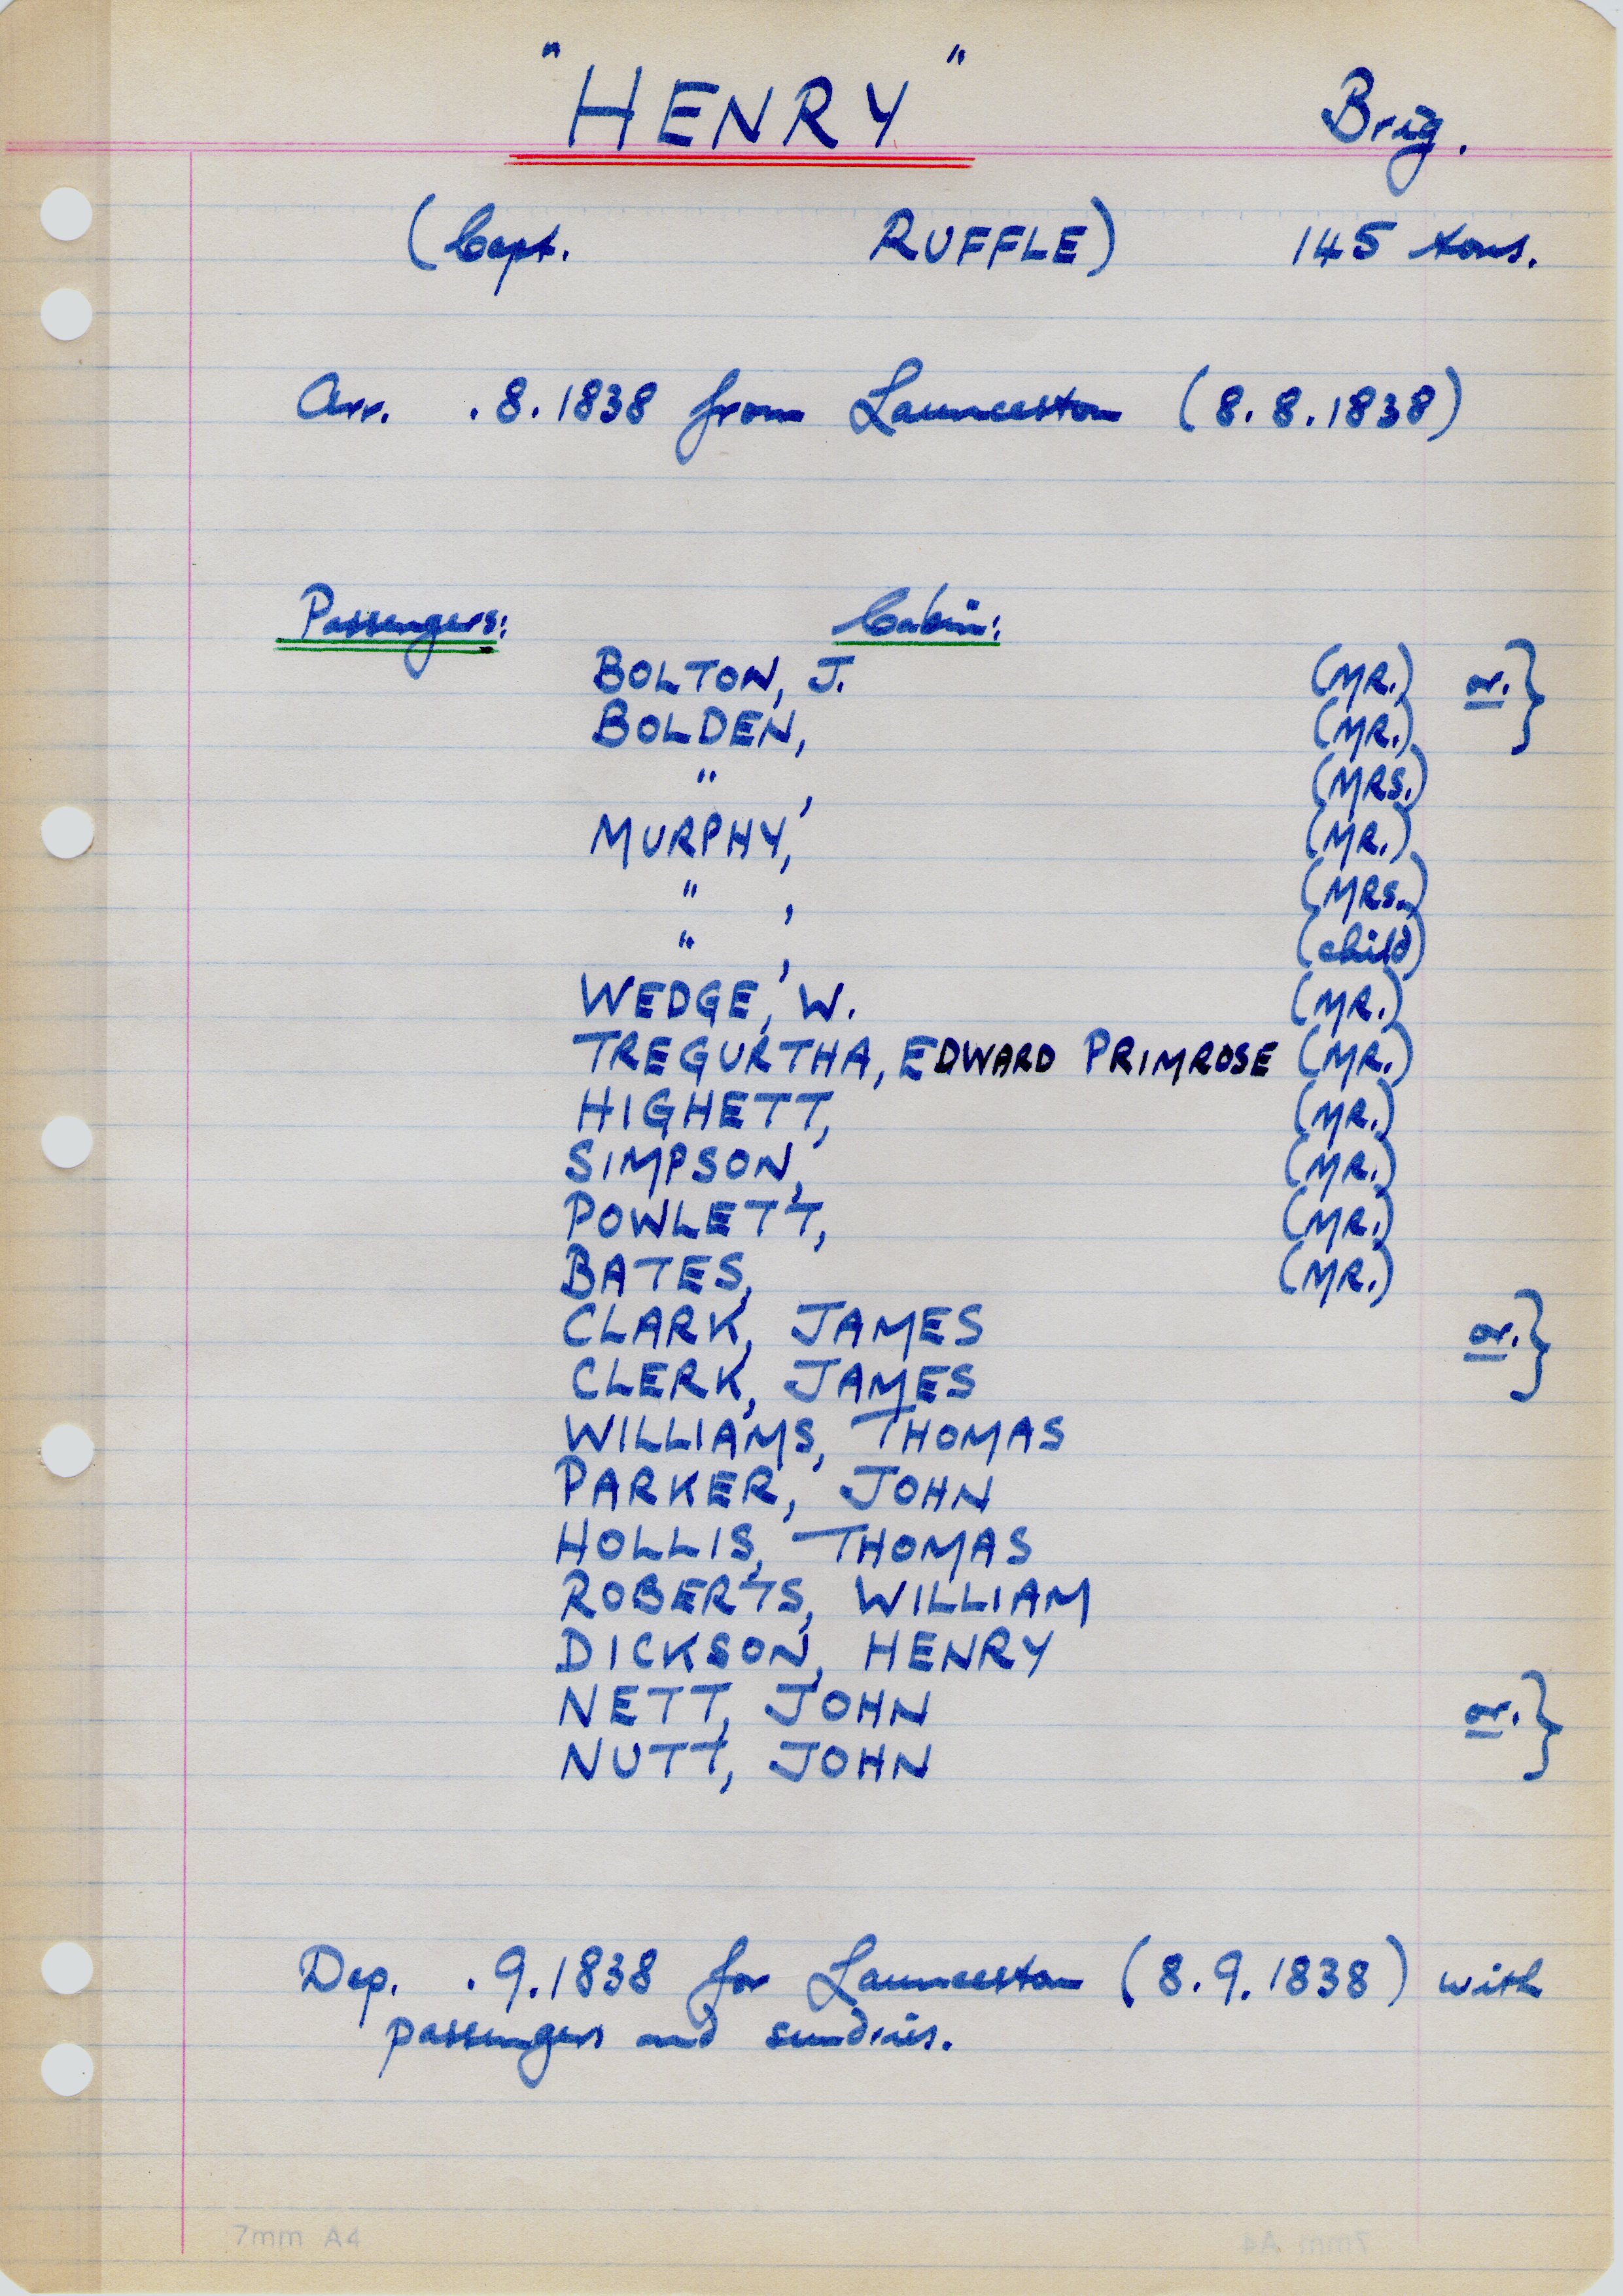 "HENRY" Brig.
(Capt. RUFFLE) 145 tons.
Arr. .8.1838 from Launceston (8.8.1838)
Passengers: Cabin:
BOLTON, J. (MR.) or. }
BOLDEN, (MR.)
" , (MRS.)
MURPHY, (MR.)
" , (MRS.)
" , (child)
WEDGE, W. (MR.)
TREGURTHA, EDWARD PRIMROSE (MR.)
HIGHETT, (MR.)
SIMPSON, (MR.)
POWLETT, (MR.)
BATES, (MR.)
CLARK, JAMES or. }
CLERK, JAMES
WILLIAMS, THOMAS
PARKER, JOHN
HOLLIS, THOMAS
ROBERTS, WILLIAM
DICKSON, HENRY
NETT, JOHN or. }
NUTT, JOHN
Dep. .9.1838 for Launceston (8.9.1838) with
passengers and sundries.
7mm A4